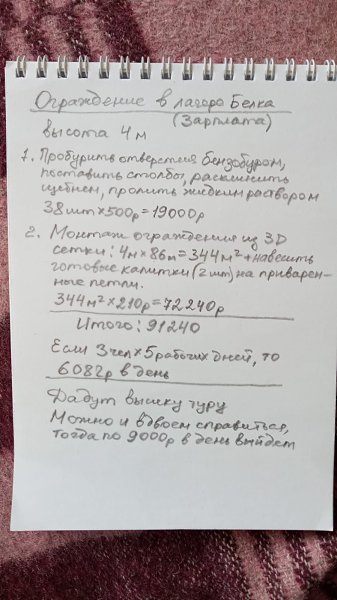 Ограждение в лагере Белка
(Зарплата)
высота 4 м
1. Пробурить отверстия бензобуром,
поставить столбы, расклинить
щебнем, пролить жидким раствором
38шт×500р=19000р
2. Монтаж ограждения из 3D
сетки: 4м×86м=344м²+навесить
готовые калитки(2шт) на приварен-
ные петли.
344м²×210р=72240р
Итого: 91240
Если 3чел×5рабочих дней, то
6082р в день
Дадут вышку туру
Можно и вдвоем справиться,
тогда по 9000р в день выйдет